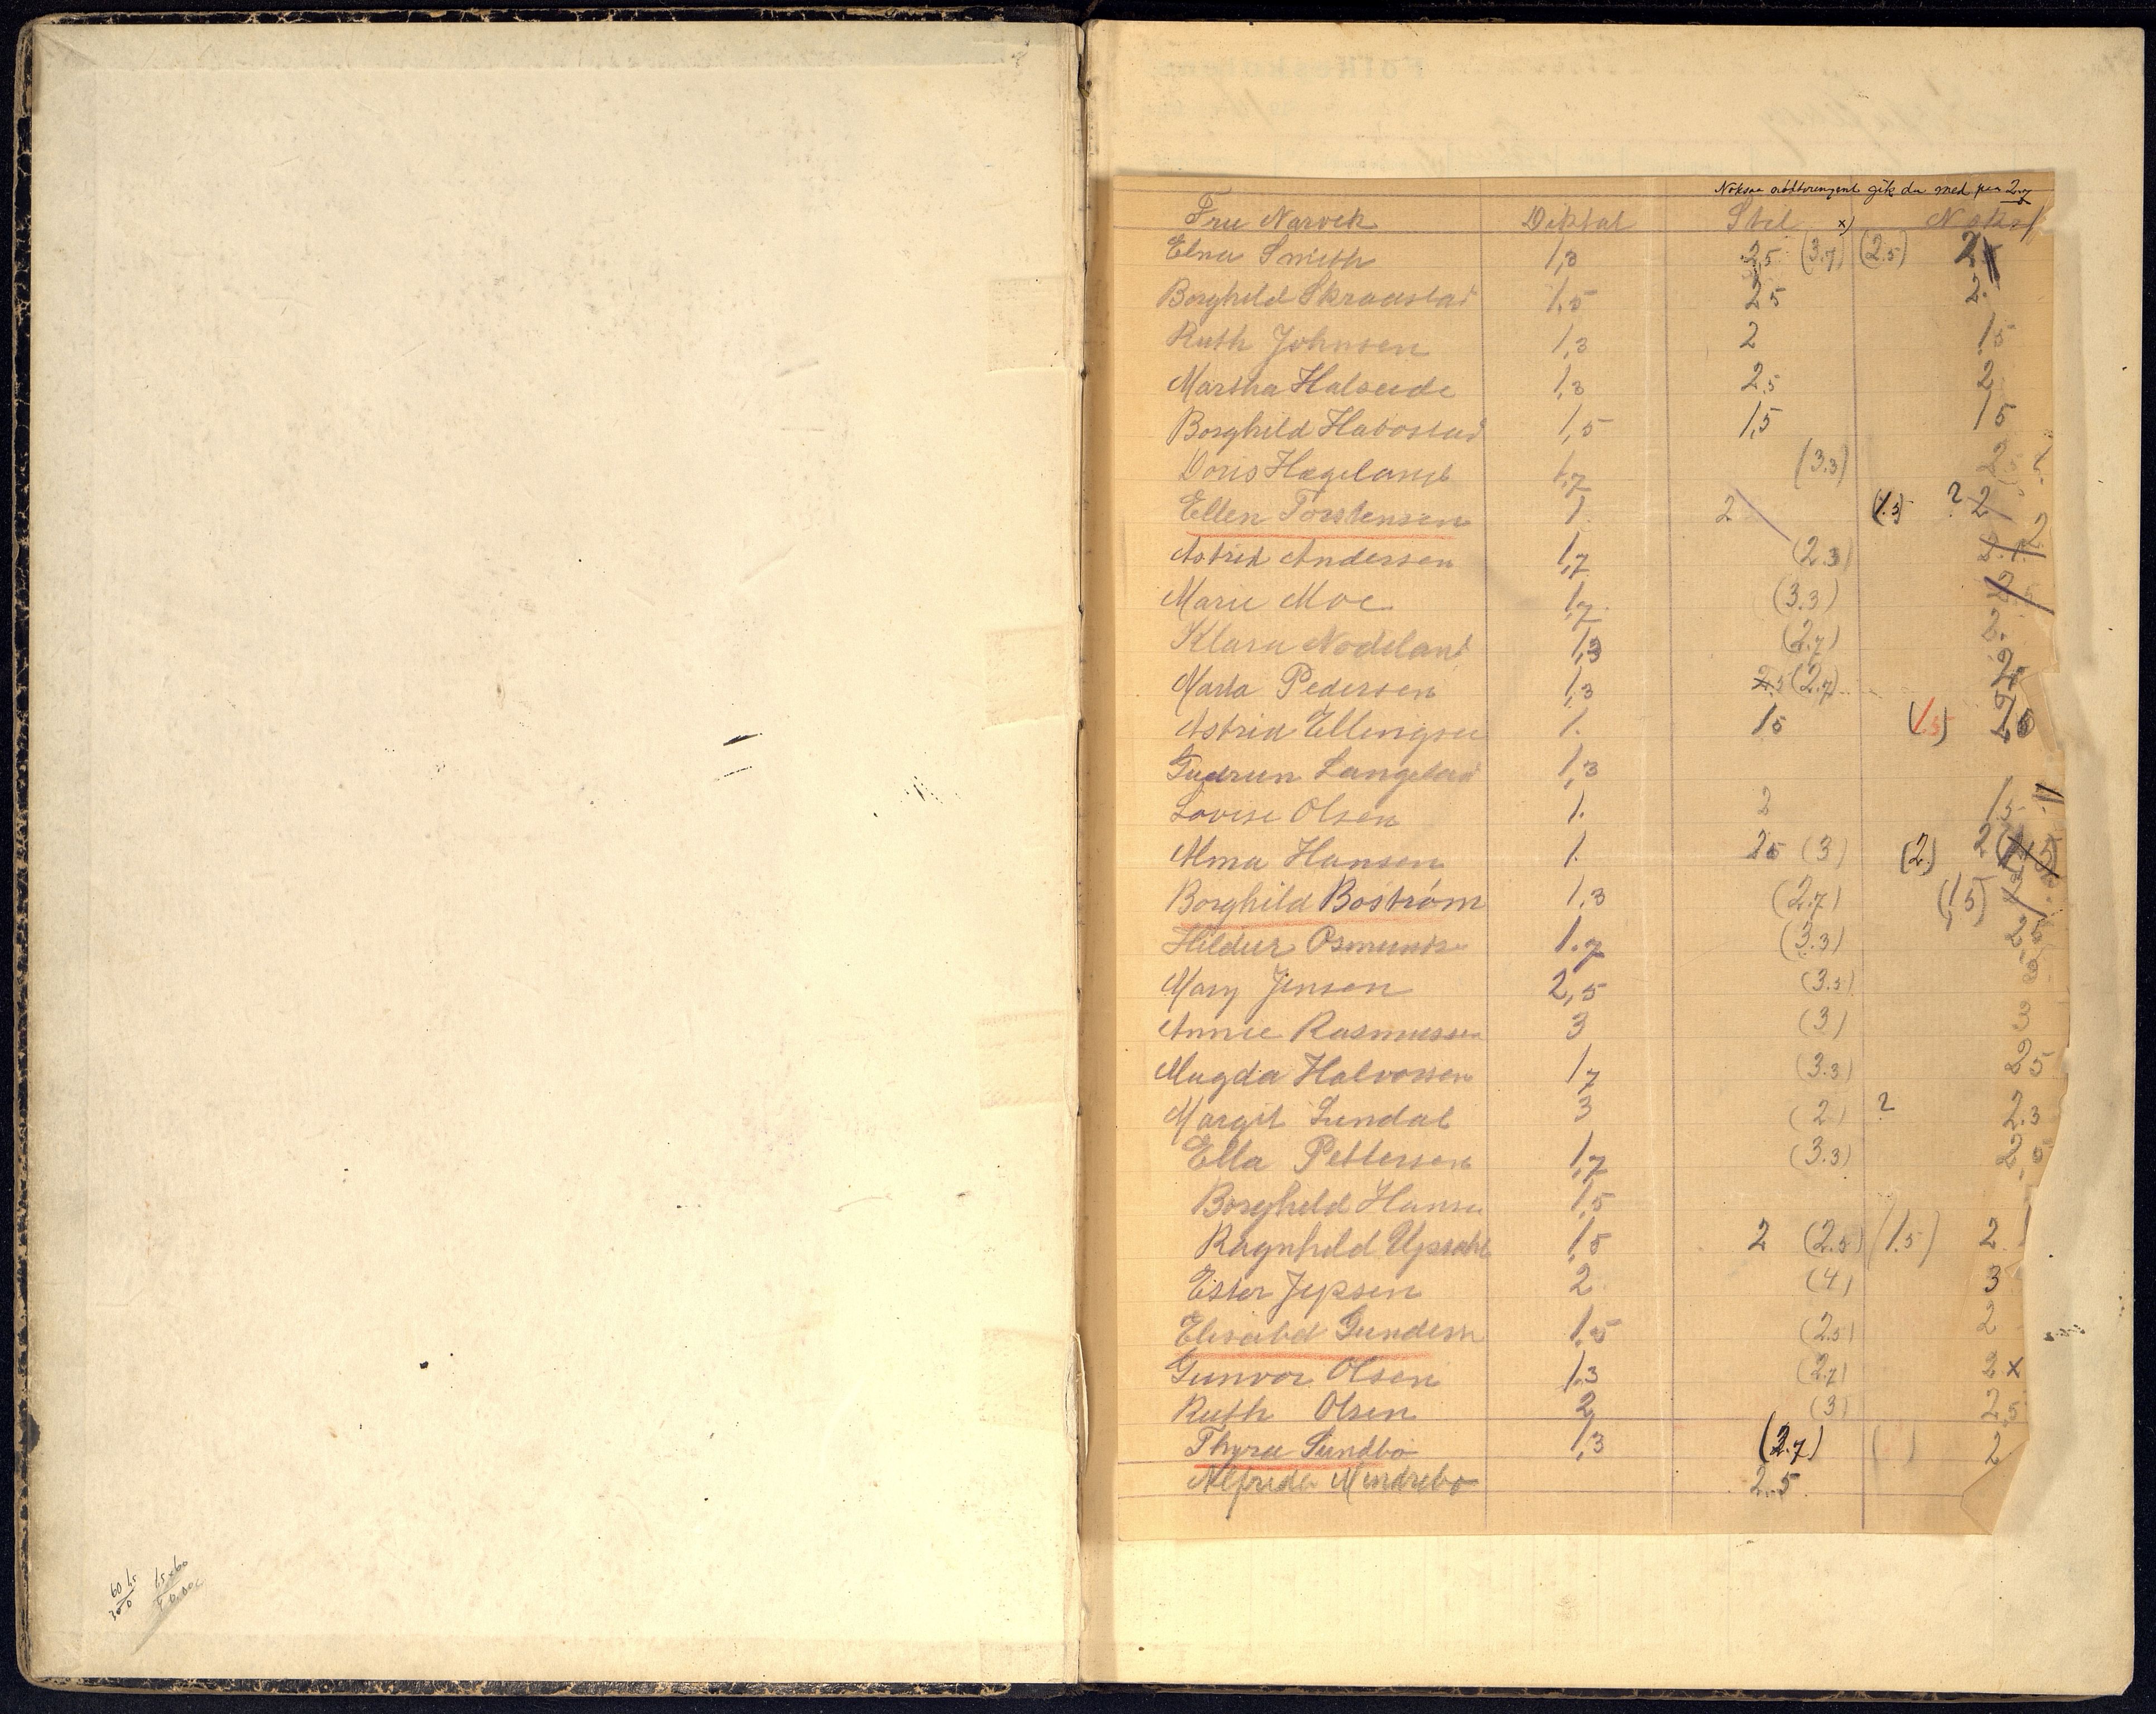 gik du med paa 2.7
Fru Narvek Diktat Stil x)
Elna Smith 1,3 2,5 (3.7) (2.5) 2
Borghild Skraastad 1,5 2 5 2.
Ruth Johnsen 1,3 2 1 5
Martha Halseide 1,3 2.5 2
Borghild Habostad 1,5 1,5 1 5
Doris Hægeland 1,7 (3.3) 2 5 ?
Ellen Torstensen 1. 2 (1.5) ? 2
Astrid Andersen 1,7 (2.3) 2.
Marie Moe 1,7 (3.3) 2.5
Klara Nodeland 1,3 (2.7) 2.
Marta Pedersen 1,3 2.5 (2.7) 2
Astrid Ellingsen 1. 1 5 (1.5)
Gudrun Langeland 1,3
Lovise Olsen 1. 2 1 5
Alma Hansen 1. 2 5 (3) (2) 2
Borghild Boström 1,3 (2.7) (1,5)
Hildur Osmundsen 1.7 (3.3) 2,5
Mary Jensen 2,5 (3.5) 3
Annie Rasmussen 3 (3) 3
Magda Halvorsen 1 7 (3.3) 2 5
Margit Lundal 3 (2) ? 2.3
Ella Pettersen 1,7 (3.3) 2,5
Borghild Hansen 1,5
Ragnhild Upsahl 1,5 2 (2.5) (1.5) 2
Ester Jepsen 2. (4) 3
Elisabet Gundersen 1.5 (2.5) 2
Gunvor Olsen 1.3 (2.7) 2 x
Ruth Olsen 2 (3) 2,5
Thyra Sundbø 1,3 (2.7) ( ) 2
Alfrida Mindrebø 2.5